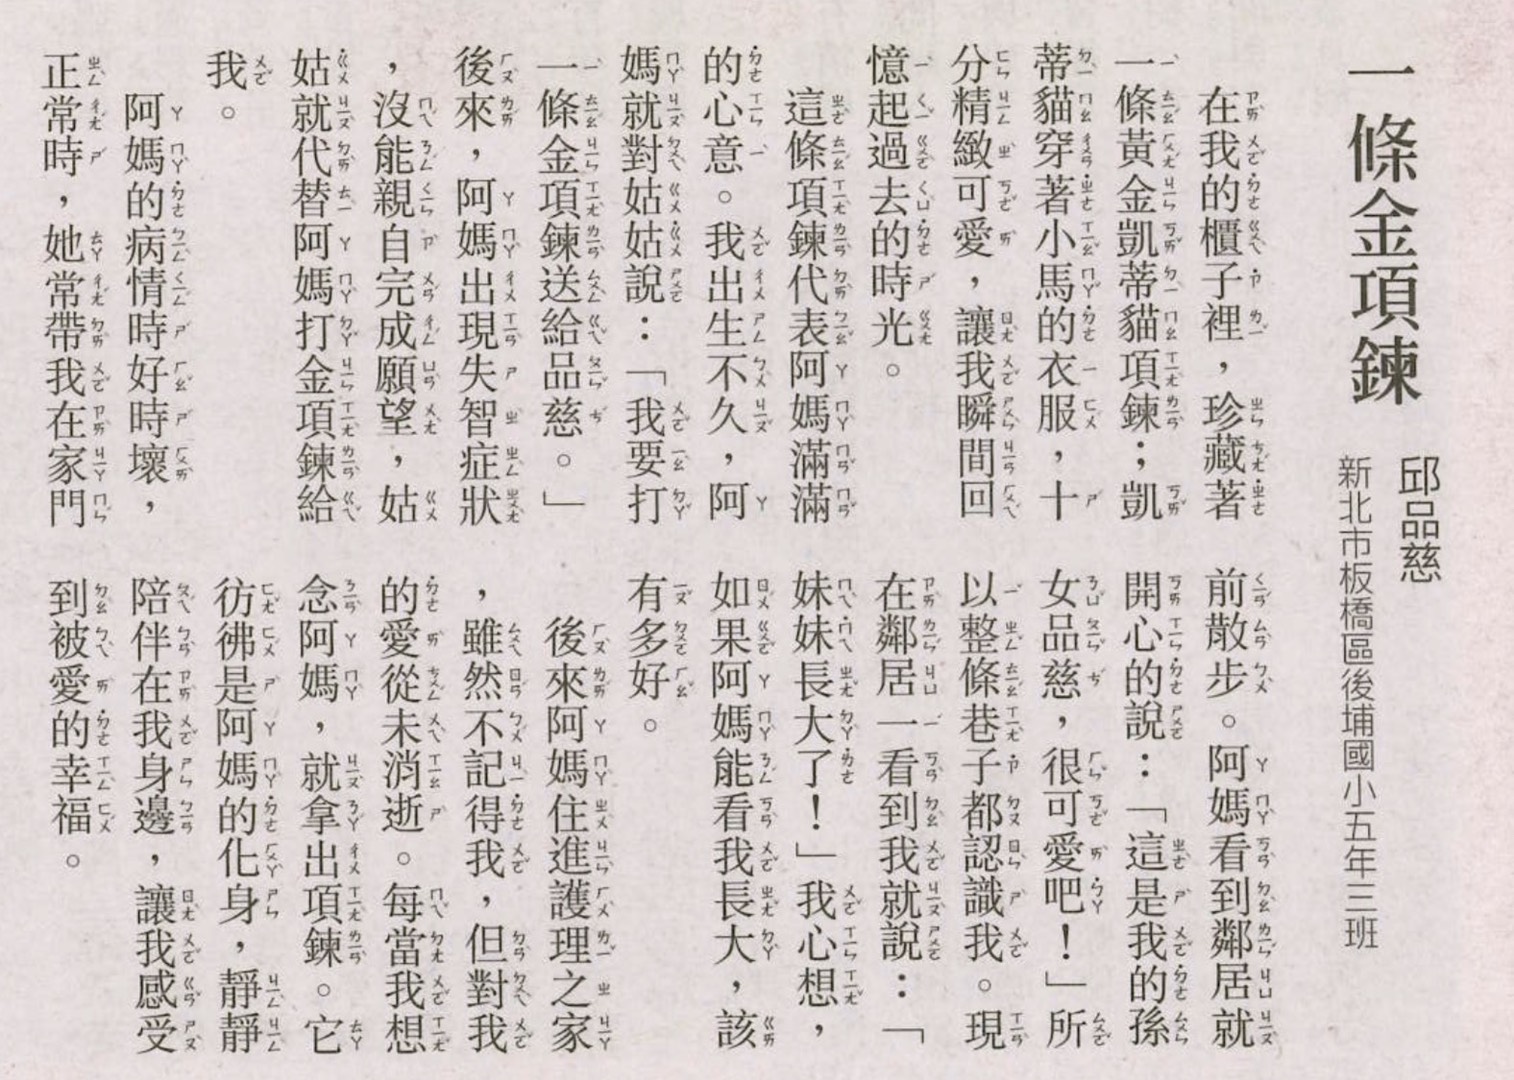 一條金項鍊
邱品慈
新北市板橋區後埔國小五年三班
在我的櫃子裡，珍藏著
一條黃金凱蒂貓項鍊；凱
蒂貓穿著小馬的衣服，十
分精緻可愛，讓我瞬間回
憶起過去的時光。
這條項鍊代表阿媽滿滿
的心意。我出生不久，阿
媽就對姑姑說：「我要打
一條金項鍊送給品慈。」
後來，阿媽出現失智症狀
，沒能親自完成願望，姑
姑就代替阿媽打金項鍊給
我。
阿媽的病情時好時壞，
正常時，她常帶我在家門
前散步。阿媽看到鄰居就
開心的說：「這是我的孫
女品慈，很可愛吧！」所
以整條巷子都認識我。現
在鄰居一看到我就說：「
妹妹長大了！」我心想，
如果阿媽能看我長大，該
有多好。
後來阿媽住進護理之家
，雖然不記得我，但對我
的愛從未消逝。每當我想
念阿媽，就拿出項鍊。它
彷彿是阿媽的化身，靜靜
陪伴在我身邊，讓我感受
到被愛的幸福。